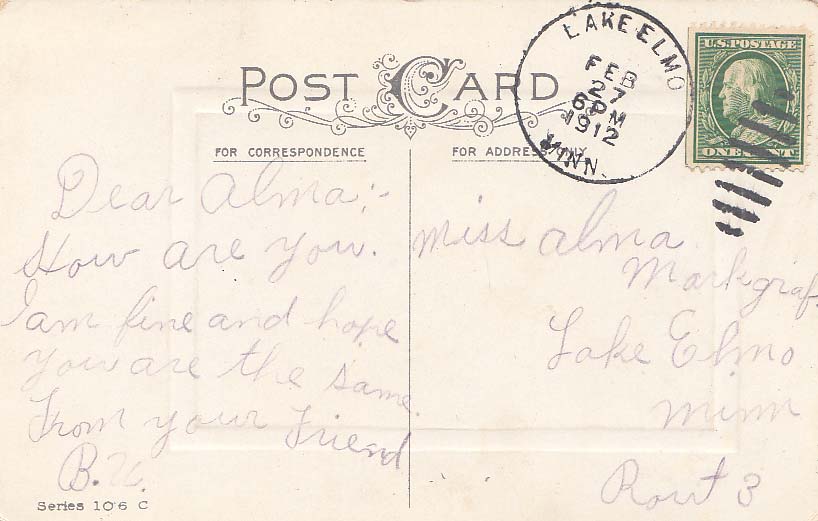 POST CARD
FOR CORRESPONDENCE
FOR ADDRESS ONLY
LAKE ELMO
FEB
27
6 PM
1912
MINN.
U.S. POSTAGE
ONE CENT
Dear Alma;-
How are you.
I am fine and hope
you are the same.
From your Friend
B.
Miss Alma
Markgraf
Lake Elmo
Minn
Rout 3
Series 106 C